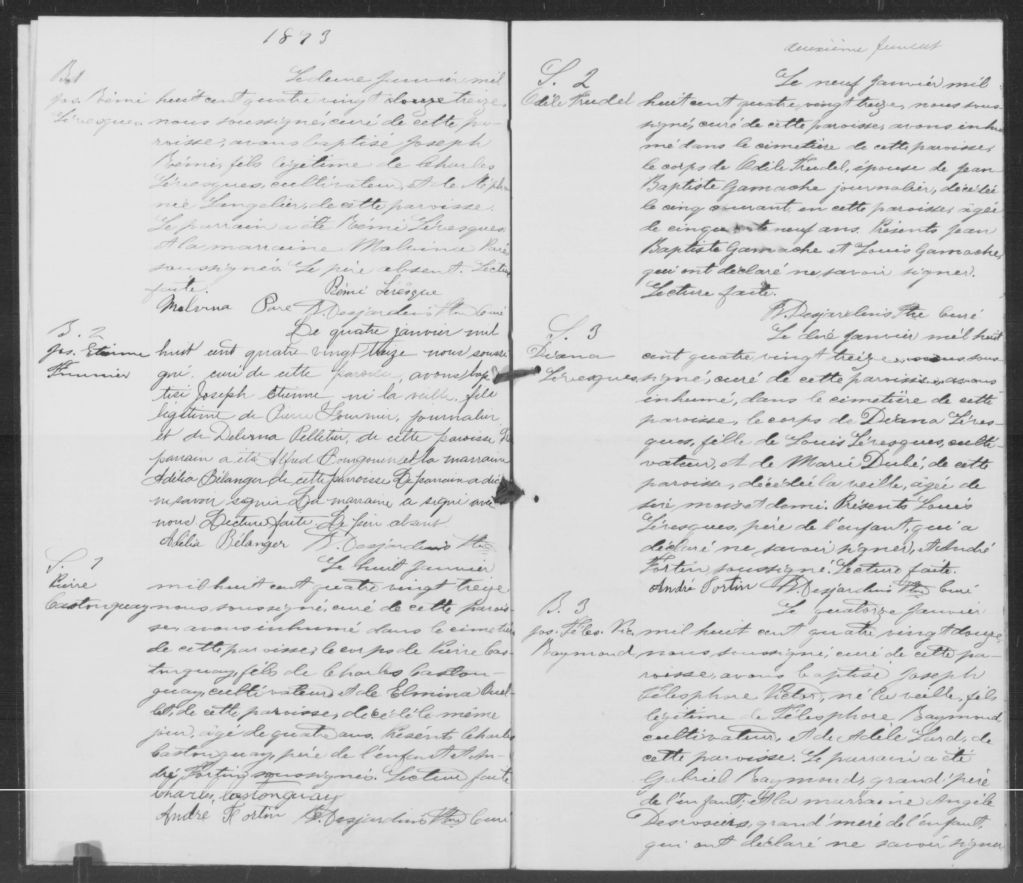 1893
B. 1
Jos. Rémi
Lévesques
Le deux janvier mil
huit cent quatre vingt douze treize,
nous soussigné, curé de cette pa-
roisse, avons baptisé Joseph
Rémi, fils légitime de Charles
Lévesques, cultivateur, et de
Langelier, de cette paroisse.
Le parrain a été Rémi Lévesques,
et la marraine Malvina Paré
soussignés. Le père absent. Lecture
faite. Rémi Levesque
Malvina Paré N. Desjardins Ptre Curé
B. 2
Jos. Etienne
Fournier
Le quatre janvier mil
huit cent quatre vingt treize nous soussi
gné, curé de cette paroisse, avons bap
tisé Joseph Etienne, né la veille, fils
légitime de Pierre Fournier, journalier
et de Delvina Pelletier, de cette paroisse Le
parrain a été Alfred et la marraine
Adélia Bélanger de cette paroisse Le parrain a dit
ne savoir signer La marraine a signé avec
nous Lecture faite Le père absent
Adélia Bélanger N. Desjardins Ptre
S. 1
Pierre
Castonguay
Le huit janvier
mil huit cent quatre vingt treize
nous, soussigné, curé de cette parois-
se, avons inhumé dans le cimetière
de cette paroisse, le corps de Pierre Cas-
tonguay, fils de Charles Caston-
guay, cultivateur, et de Elmina Ouel-
let, de cette paroisse, décédé le même
jour, âgé de quatre ans. Présents Charles
Castonguay, père de l'enfant, et An-
dré Fortin, soussignés. Lecture faite
Charles Castonguay
André Fortin N. Desjardins Ptre Curé
deuxième feuillet
S. 2
Odile Trudel
Le neuf janvier mil
huit cent quatre vingt treize, nous sous-
signé, curé de cette paroisse, avons inhu
mé dans le cimetière de cette paroisse,
le corps de Odile Trudel, épouse de Jean
Baptiste Gamache journalier, décédée
le cinq courant en cette paroisse, âgée
de cinquante neuf ans. Présents Jean
Baptiste Gamache et Louis Gamache,
qui ont déclaré ne savoir signer.
Lecture faite.
N. Desjardins Ptre Curé
S. 3
Diana
Lévesques
Le dix janvier mil huit
cent quatre vingt treize, nous sous
signé, curé de cette paroisse, avons
inhumé, dans le cimetière de cette
paroisse, le corps de Diana Léves-
ques, fille de Louis Lévesques, culti-
vateur, et de Marie Dubé, de cette
paroisse, décédée la veille, âgée de
six mois et demi. Présents Louis
Lévesques, père de l'enfant, qui a
déclaré ne savoir signer, et André
Fortin soussigné. Lecture faite.
André Fortin N. Desjardins Ptre Curé
B. 3
Jos. Téles. Vic.
Raymond
Le quatorze janvier
mil huit cent quatre vingt douze
nous, soussigné, curé de cette pa-
roisse, avons baptisé Joseph
Télesphore Victor, né la veille, fils
légitime de Télesphore Raymond
cultivateur, et de Adèle Lard, de
cette paroisse. Le parrain a été
Gabriel Raymond, grand'père
de l'enfant, et la marraine Angèle
Desrosiers, grand'mère de l'enfant,
qui ont déclaré ne savoir signer